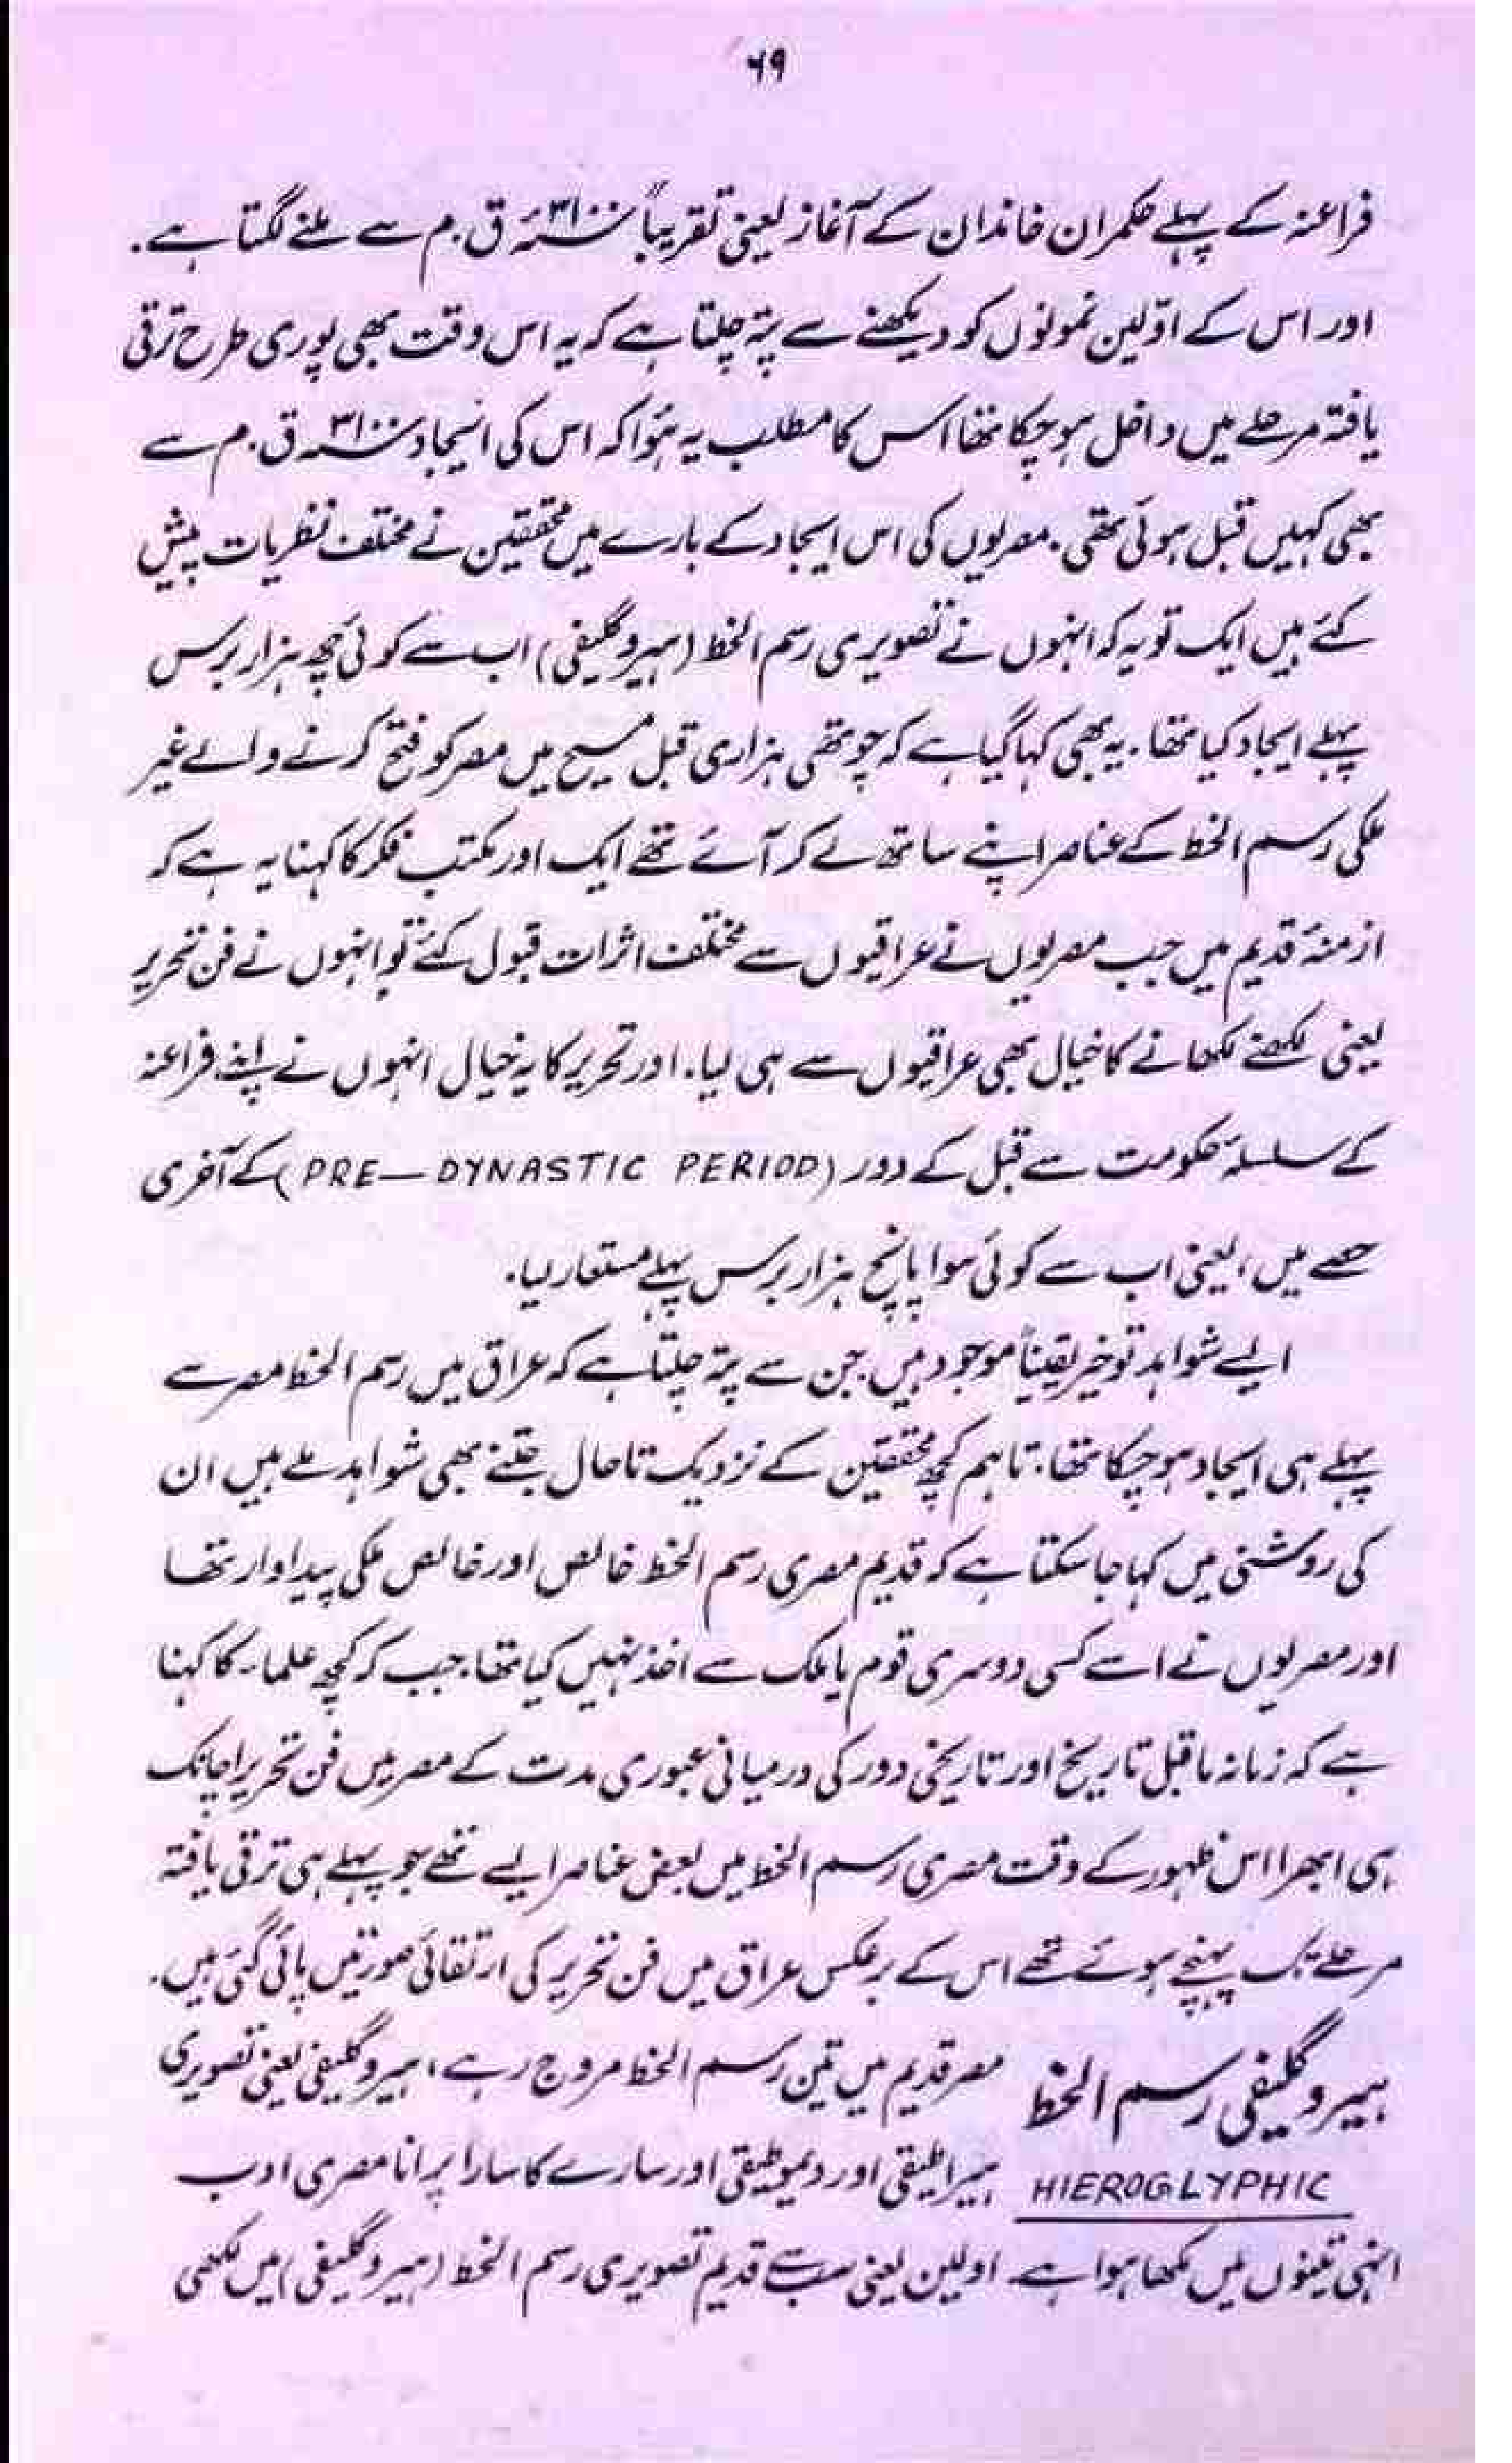 ۶۹
فراعنہ کے پہلے حکمران خاندان کے آغاز یعنی تقریباً ۳۱۰۰ء ق.م سے ملنے لگتا ہے۔
اور اس کے اوّلین نمونوں کو دیکھنے سے پتہ چلتا ہے کہ یہ اس وقت بھی پوری طرح ترقی
یافتہ مرحلے میں داخل ہو چکا تھا اس کا مطلب یہ ہُوا کہ اس کی ایجاد ۳۱۰۰ ق.م سے
بھی کہیں قبل ہوئی تھی۔ مصریوں کی اس ایجاد کے بارے میں محققین نے مختلف نظریات پیش
کئے ہیں ایک تو یہ کہ انہوں نے تصویری رسم الخط (ہیروگلیفی) اب سے کوئی چھ ہزار برس
پہلے ایجاد کیا تھا۔ یہ بھی کہا گیا ہے کہ چوتھی ہزاری قبل مسیح میں مصر کو فتح کرنے والے غیر
ملکی رسم الخط کے عناصر اپنے ساتھ لے کر آئے تھے ایک اور مکتب فکر کا کہنا یہ ہے کہ
ازمنۂ قدیم میں جب مصریوں نے عراقیوں سے مختلف اثرات قبول کئے تو انہوں نے فن تحریر
یعنی لکھنے لکھانے کا خیال بھی عراقیوں سے ہی لیا۔ اور تحریر کا یہ خیال انہوں نے اپنے فراعنہ
کے سلسلۂ حکومت سے قبل کے دور (PRE-DYNASTIC PERIOD) کے آخری
حصے میں، یعنی اب سے کوئی سوا پانچ ہزار برس پہلے مستعار لیا۔
ایسے شواہد تو خیر یقیناً موجود ہیں جن سے پتہ چلتا ہے کہ عراق میں رسم الخط مصر سے
پہلے ہی ایجاد ہو چکا تھا۔ تاہم کچھ محققین کے نزدیک تاحال جتنے بھی شواہد ملے ہیں ان
کی روشنی میں کہا جا سکتا ہے کہ قدیم مصری رسم الخط خالص اور خالص ملکی پیداوار تھا
اور مصریوں نے اسے کسی دوسری قوم یا ملک سے اخذ نہیں کیا تھا۔ جب کہ کچھ علماء کا کہنا
ہے کہ زمانہ ماقبل تاریخ اور تاریخی دور کی درمیانی عبوری مدت کے مصر میں فن تحریر اچانک
ہی ابھرا اس ظہور کے وقت مصری رسم الخط میں بعض عناصر ایسے تھے جو پہلے ہی ترقی یافتہ
مرحلے تک پہنچے ہوئے تھے اس کے برعکس عراق میں فن تحریر کی ارتقائی صورتیں پائی گئی ہیں۔
ہیروگلیفی رسم الخط مصر قدیم میں تین رسم الخط مروج رہے، ہیروگلیفی یعنی تصویری
HIEROGLYPHIC ہیراطیقی اور دیموطیقی اور سارے کا سارا پرانا مصری ادب
انہی تینوں میں لکھا ہوا ہے۔ اولین یعنی سب سے قدیم تصویری رسم الخط (ہیروگلیفی) میں لکھی